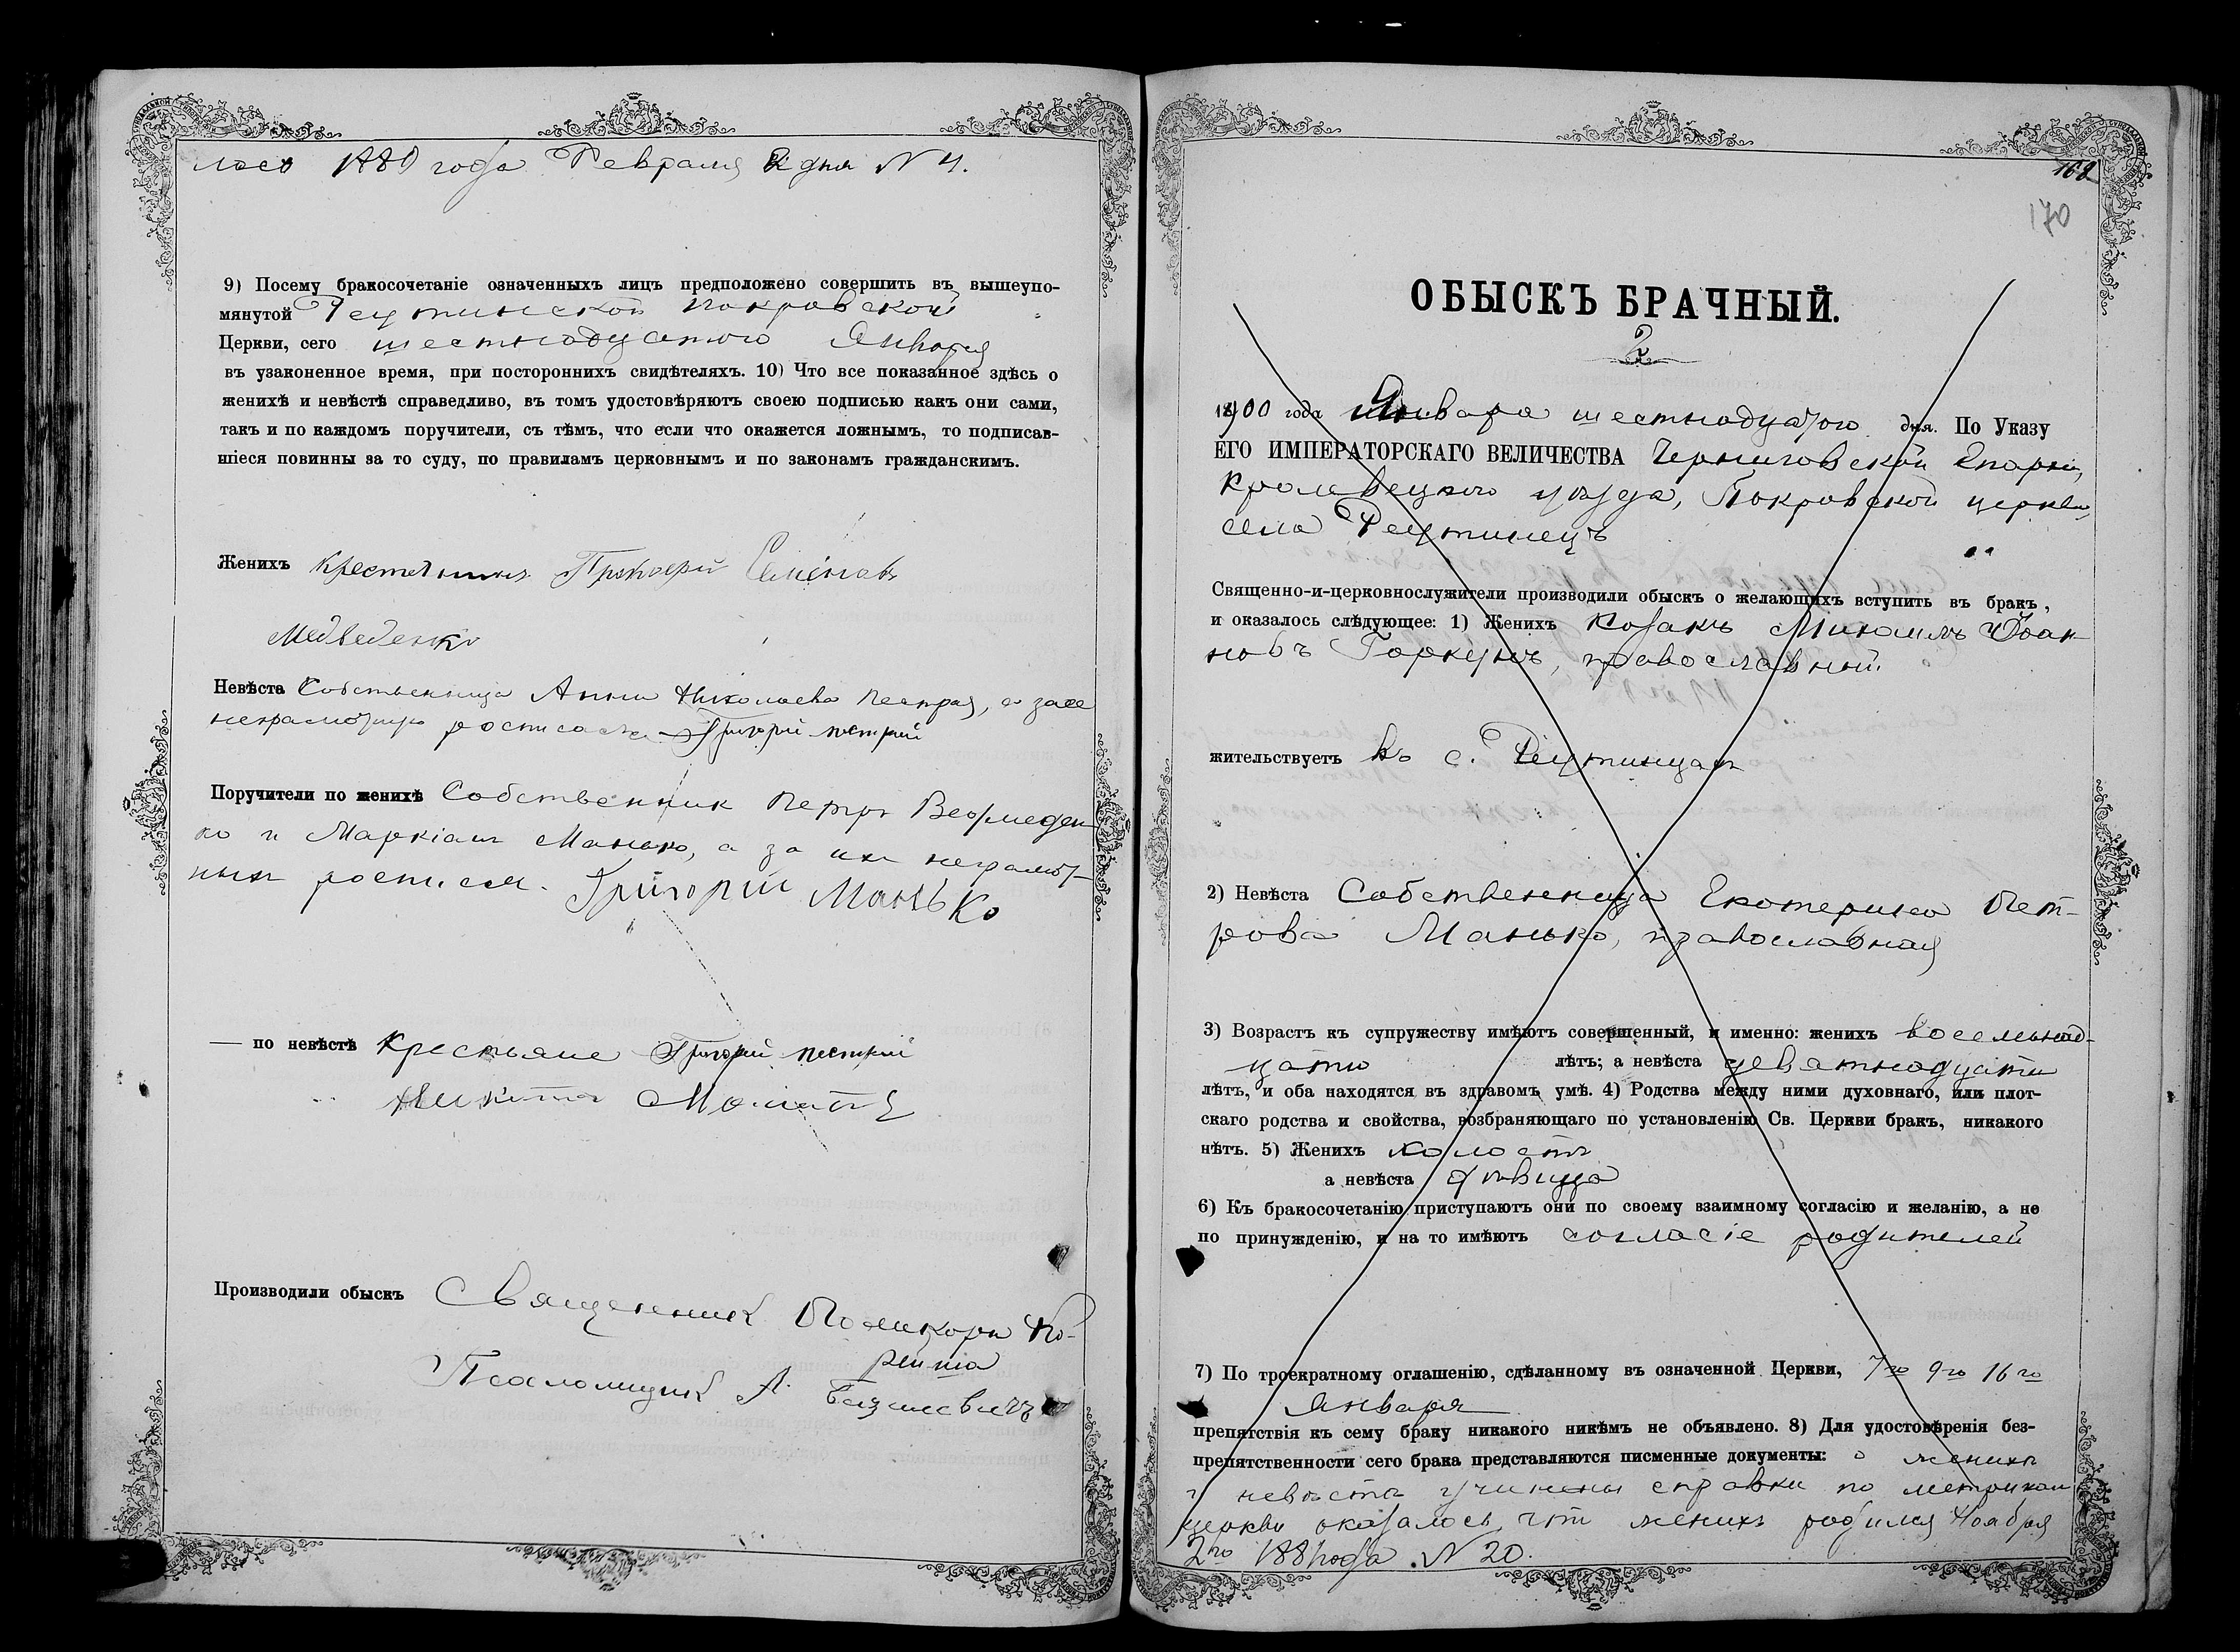 лась 1880 года Февраля 2 дня N 4.
9) Посему бракосочетаніе означенныхъ лицъ предположено совершить въ вышеупо-
мянутой Реутинской Покровской
Церкви, сего шестнадцатого Января
въ узаконенное время, при постороннихъ свидѣтеляхъ. 10) Что все показанное здѣсь о
женихѣ и невѣстѣ справедливо, въ томъ удостовѣряютъ своею подписью какъ они сами,
такъ и по каждомъ поручители, съ тѣмъ, что если что окажется ложнымъ, то подписав-
шіеся повинны за то суду, по правиламъ церковнымъ и по законамъ гражданскимъ.
Женихъ Крестянинъ Прокофій Семеновъ
Медведенко
Невѣста Собственница Анна Николаева Пестрая, а за ее
неграмотную росписался Григорій Пестрий
Поручители по женихѣ Собственник Петръ
ко и Маркіанъ Манько, а за ихъ неграмот-
ныхъ росписал. Григорій Манько
— по невѣстѣ Крестьяне Григорий Пестрий
Никита
Производили обыскъ Священникъ Поликарпъ
Псаломщикъ А.
168
170
ОБЫСКЪ БРАЧНЫЙ.
2
1900 года Января шестнадцатого дня. По Указу
ЕГО ИМПЕРАТОРСКАГО ВЕЛИЧЕСТВА Черниговской Епархіи,
Кролевецкого уѣзда, Покровской церкви,
села Реутинецъ
Священно-и-церковнослужители производили обыскъ о желающихъ вступить въ бракъ,
и оказалось слѣдующее: 1) Женихъ Козакъ Михаилъ Иоан-
новъ Горкунъ, православный.
жительствуетъ въ с. Реутинцахъ
2) Невѣста Собственница Екатерина Пет-
рова Манько, православная
3) Возрастъ къ супружеству имѣютъ совершенный, и именно: женихъ восемьнад-
цати лѣтъ; а невѣста девятнадцати
лѣтъ, и оба находятся въ здравомъ умѣ. 4) Родства между ними духовнаго, или плот-
скаго родства и свойства, возбраняющаго по установленію Св. Церкви бракъ, никакого
нѣтъ. 5) Женихъ холостъ
а невѣста дѣвица
6) Къ бракосочетанію приступаютъ они по своему взаимному согласію и желанію, а не
по принужденію, и на то имѣютъ согласіе родителей
7) По троекратному оглашенію, сдѣланному въ означенной Церкви, 7го 9го 16го
Января
препятствія къ сему браку никакого никѣмъ не объявлено. 8) Для удостовѣренія без-
препятственности сего брака представляются писменные документы: о женихѣ
и невѣстѣ учинены справки по метрикам
церкви оказалось, что женихъ родился Ноября
2го 1881 года N 20.